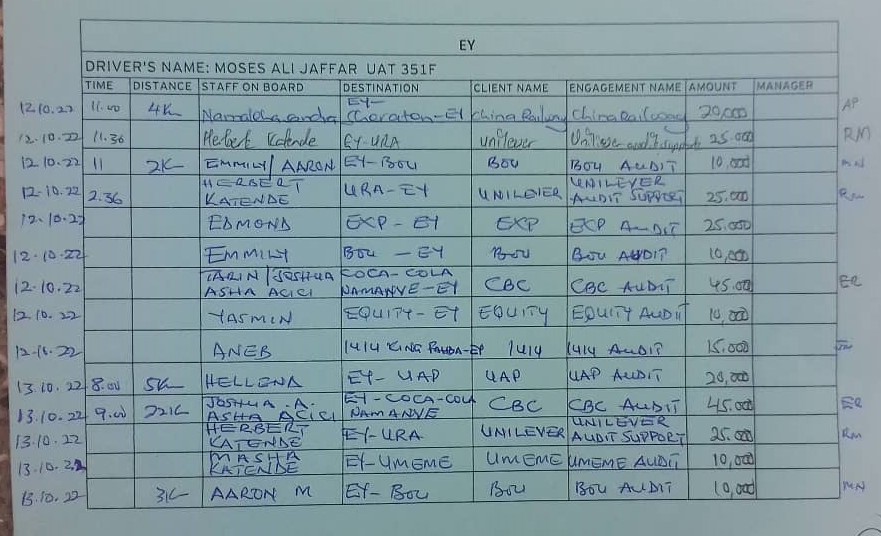 EY
DRIVER'S NAME: MOSES ALI JAFFAR UAT 351F
TIME DISTANCE STAFF ON BOARD DESTINATION CLIENT NAME ENGAGEMENT NAME AMOUNT MANAGER
12.10.22 11.00 4K EY- Sheraton-EY China Railway China Railway 20,000 AP
12.10.22 11.36 Herbert Katende EY-URA Unilever Unilever audit support 25.000 RM
12.10.22 11 2K EMMILY/ AARON EY-BOU BOU BOU AUDIT 10,000 MN
12.10.22 2.36 HERBERT KATENDE URA-EY UNILEVER UNILEVER AUDIT SUPPORT 25.000 RM
12.10.22 EDMOND EXP - EY EXP EXP AUDIT 25.000
12.10.22 EMMILY BOU - EY BOU BOU AUDIT 10,000
12.10.22 TARIN / JOSHUA ASHA ACICI COCA-COLA NAMANVE-EY CBC CBC AUDIT 45.000 ER
12.10.22 YASMIN EQUITY- EY EQUITY EQUITY AUDIT 10,000
12.10.22 ANEB 1414 KING -EY 1414 1414 AUDIT 15.000
13.10.22 8.00 5K HELLENA EY- UAP UAP UAP AUDIT 20,000
13.10.22 9.00 22K JOSHUA .A. ASHA ACICI EY-COCA-COLA NAMANVE CBC CBC AUDIT 45.000 ER
13.10.22 HERBERT KATENDE EY-URA UNILEVER UNILEVER AUDIT SUPPORT 25.000 RM
13.10.22 MASHA KATENDE EY-UMEME UMEME UMEME AUDIT 10,000
13.10.22 3K AARON M EY- BOU BOU BOU AUDIT 10,000 MN